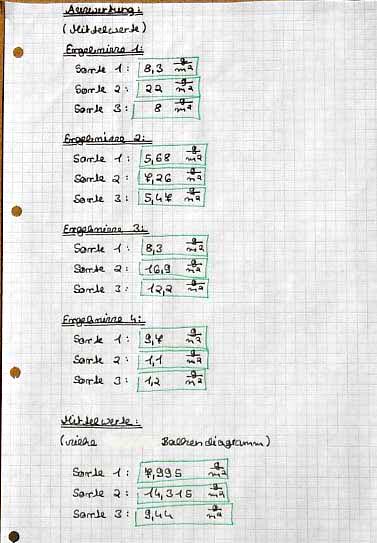 Auswertung:
(Mittelwerte)
Ergebnisse 1:
Sorte 1: 8,3 g/m²
Sorte 2: 22 g/m²
Sorte 3: 8 g/m²
Ergebnisse 2:
Sorte 1: 5,68 g/m²
Sorte 2: 7,26 g/m²
Sorte 3: 5,47 g/m²
Ergebnisse 3:
Sorte 1: 8,3 g/m²
Sorte 2: 16,9 g/m²
Sorte 3: 12,2 g/m²
Ergebnisse 4:
Sorte 1: 9,7 g/m²
Sorte 2: 1,1 g/m²
Sorte 3: 1,2 g/m²
Mittelwerte:
(siehe Balkendiagramm)
Sorte 1: 7,995 g/m²
Sorte 2: 14,315 g/m²
Sorte 3: 9,44 g/m²